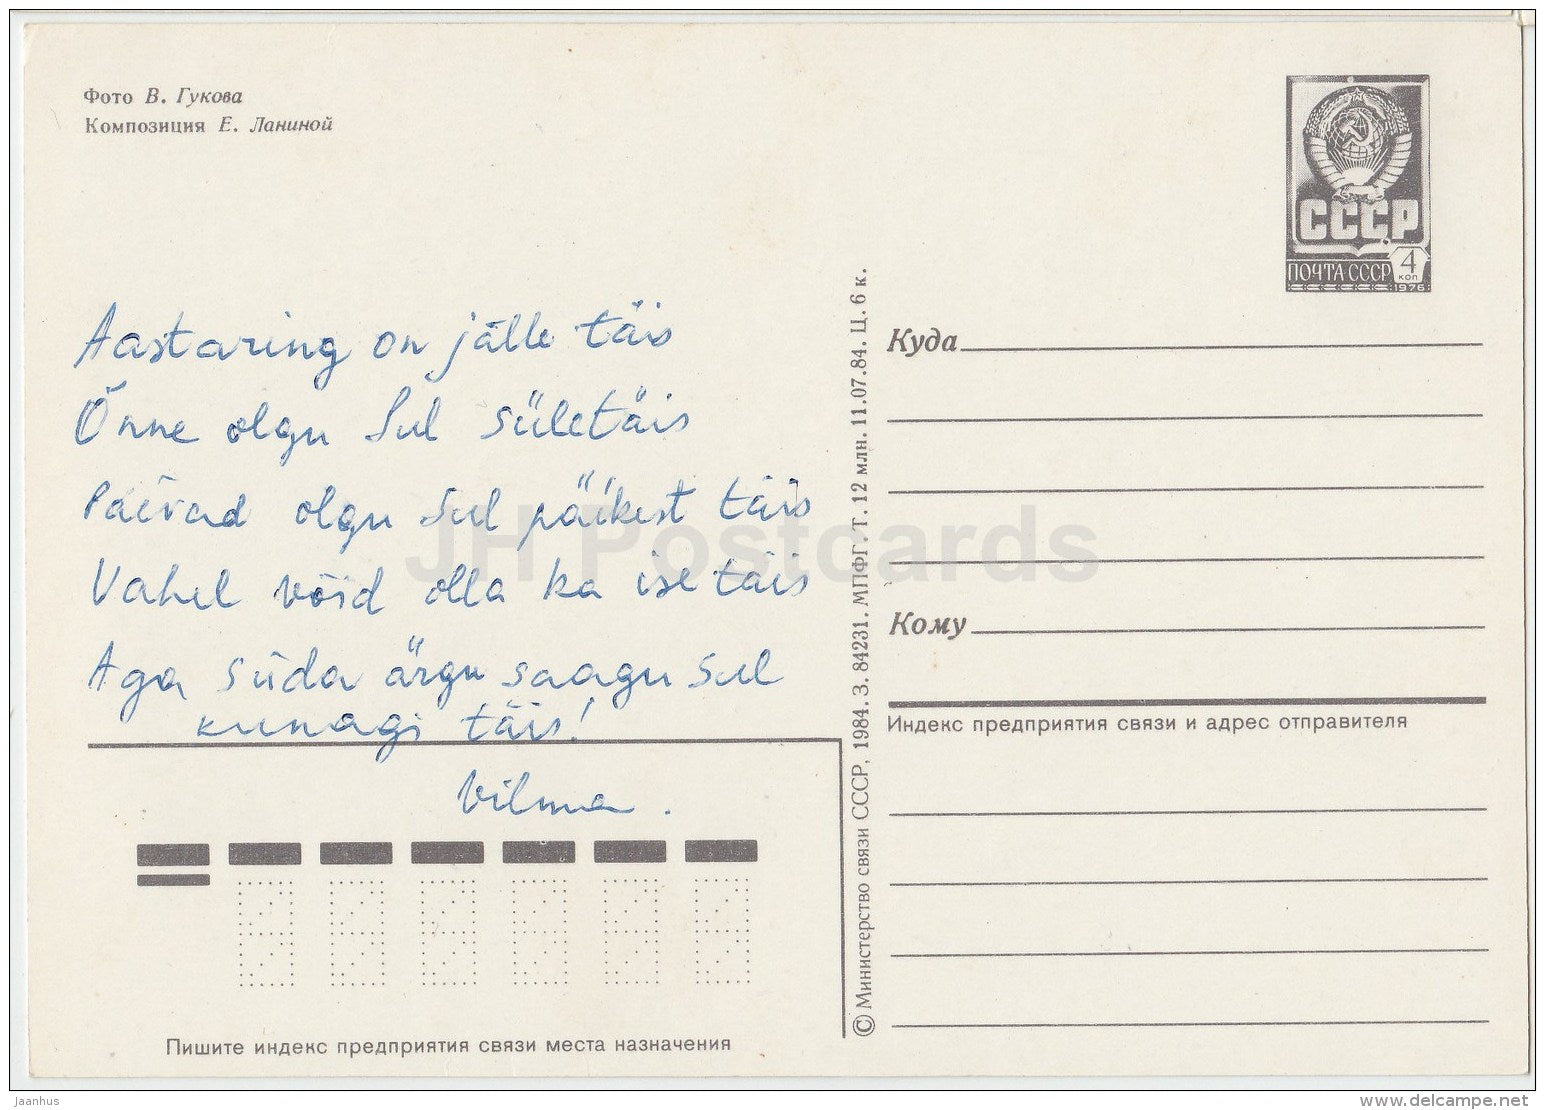 Фото В. Гукова
Композиция Е. Ланиной
СССР
ПОЧТА СССР 4 коп
1976
Aastaring on jälle täis
Õnne olgu Sul sületäis
Päevad olgu Sul päikest täis
Vahel võid olla ka ise täis
Aga süda ärgu saagu Sul
kunagi täis!
Vilma.
Пишите индекс предприятия связи места назначения
© Министерство связи СССР, 1984. З. 84231. МПФГ. Т. 12 млн. 11.07.84. Ц. 6 к.
Куда
Кому
Индекс предприятия связи и адрес отправителя
JH Postcards
Jaanhus
www.delcampe.net